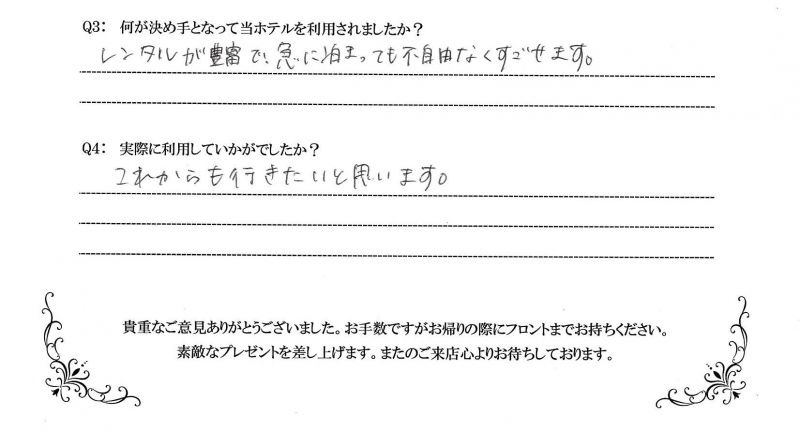 Q3: 何が決め手となって当ホテルを利用されましたか？
レンタルが豊富で、急に泊まっても不自由なくすごせます。
Q4: 実際に利用していかがでしたか？
これからも行きたいと思います。
貴重なご意見ありがとうございました。お手数ですがお帰りの際にフロントまでお持ちください。
素敵なプレゼントを差し上げます。またのご来店心よりお待ちしております。